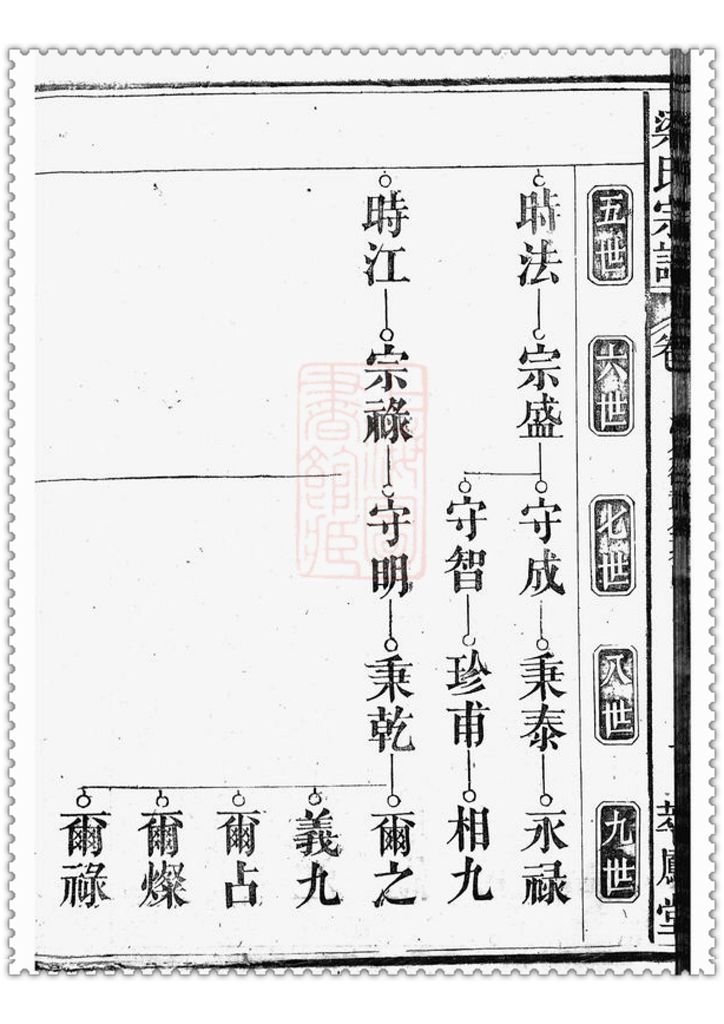 梁氏宗譜
卷
五世
六世
七世
八世
九世
時法
宗盛
守成
秉泰
永禄
守智
珍甫
相九
時江
宗祿
守明
秉乾
爾之
義九
爾占
爾燦
爾祿